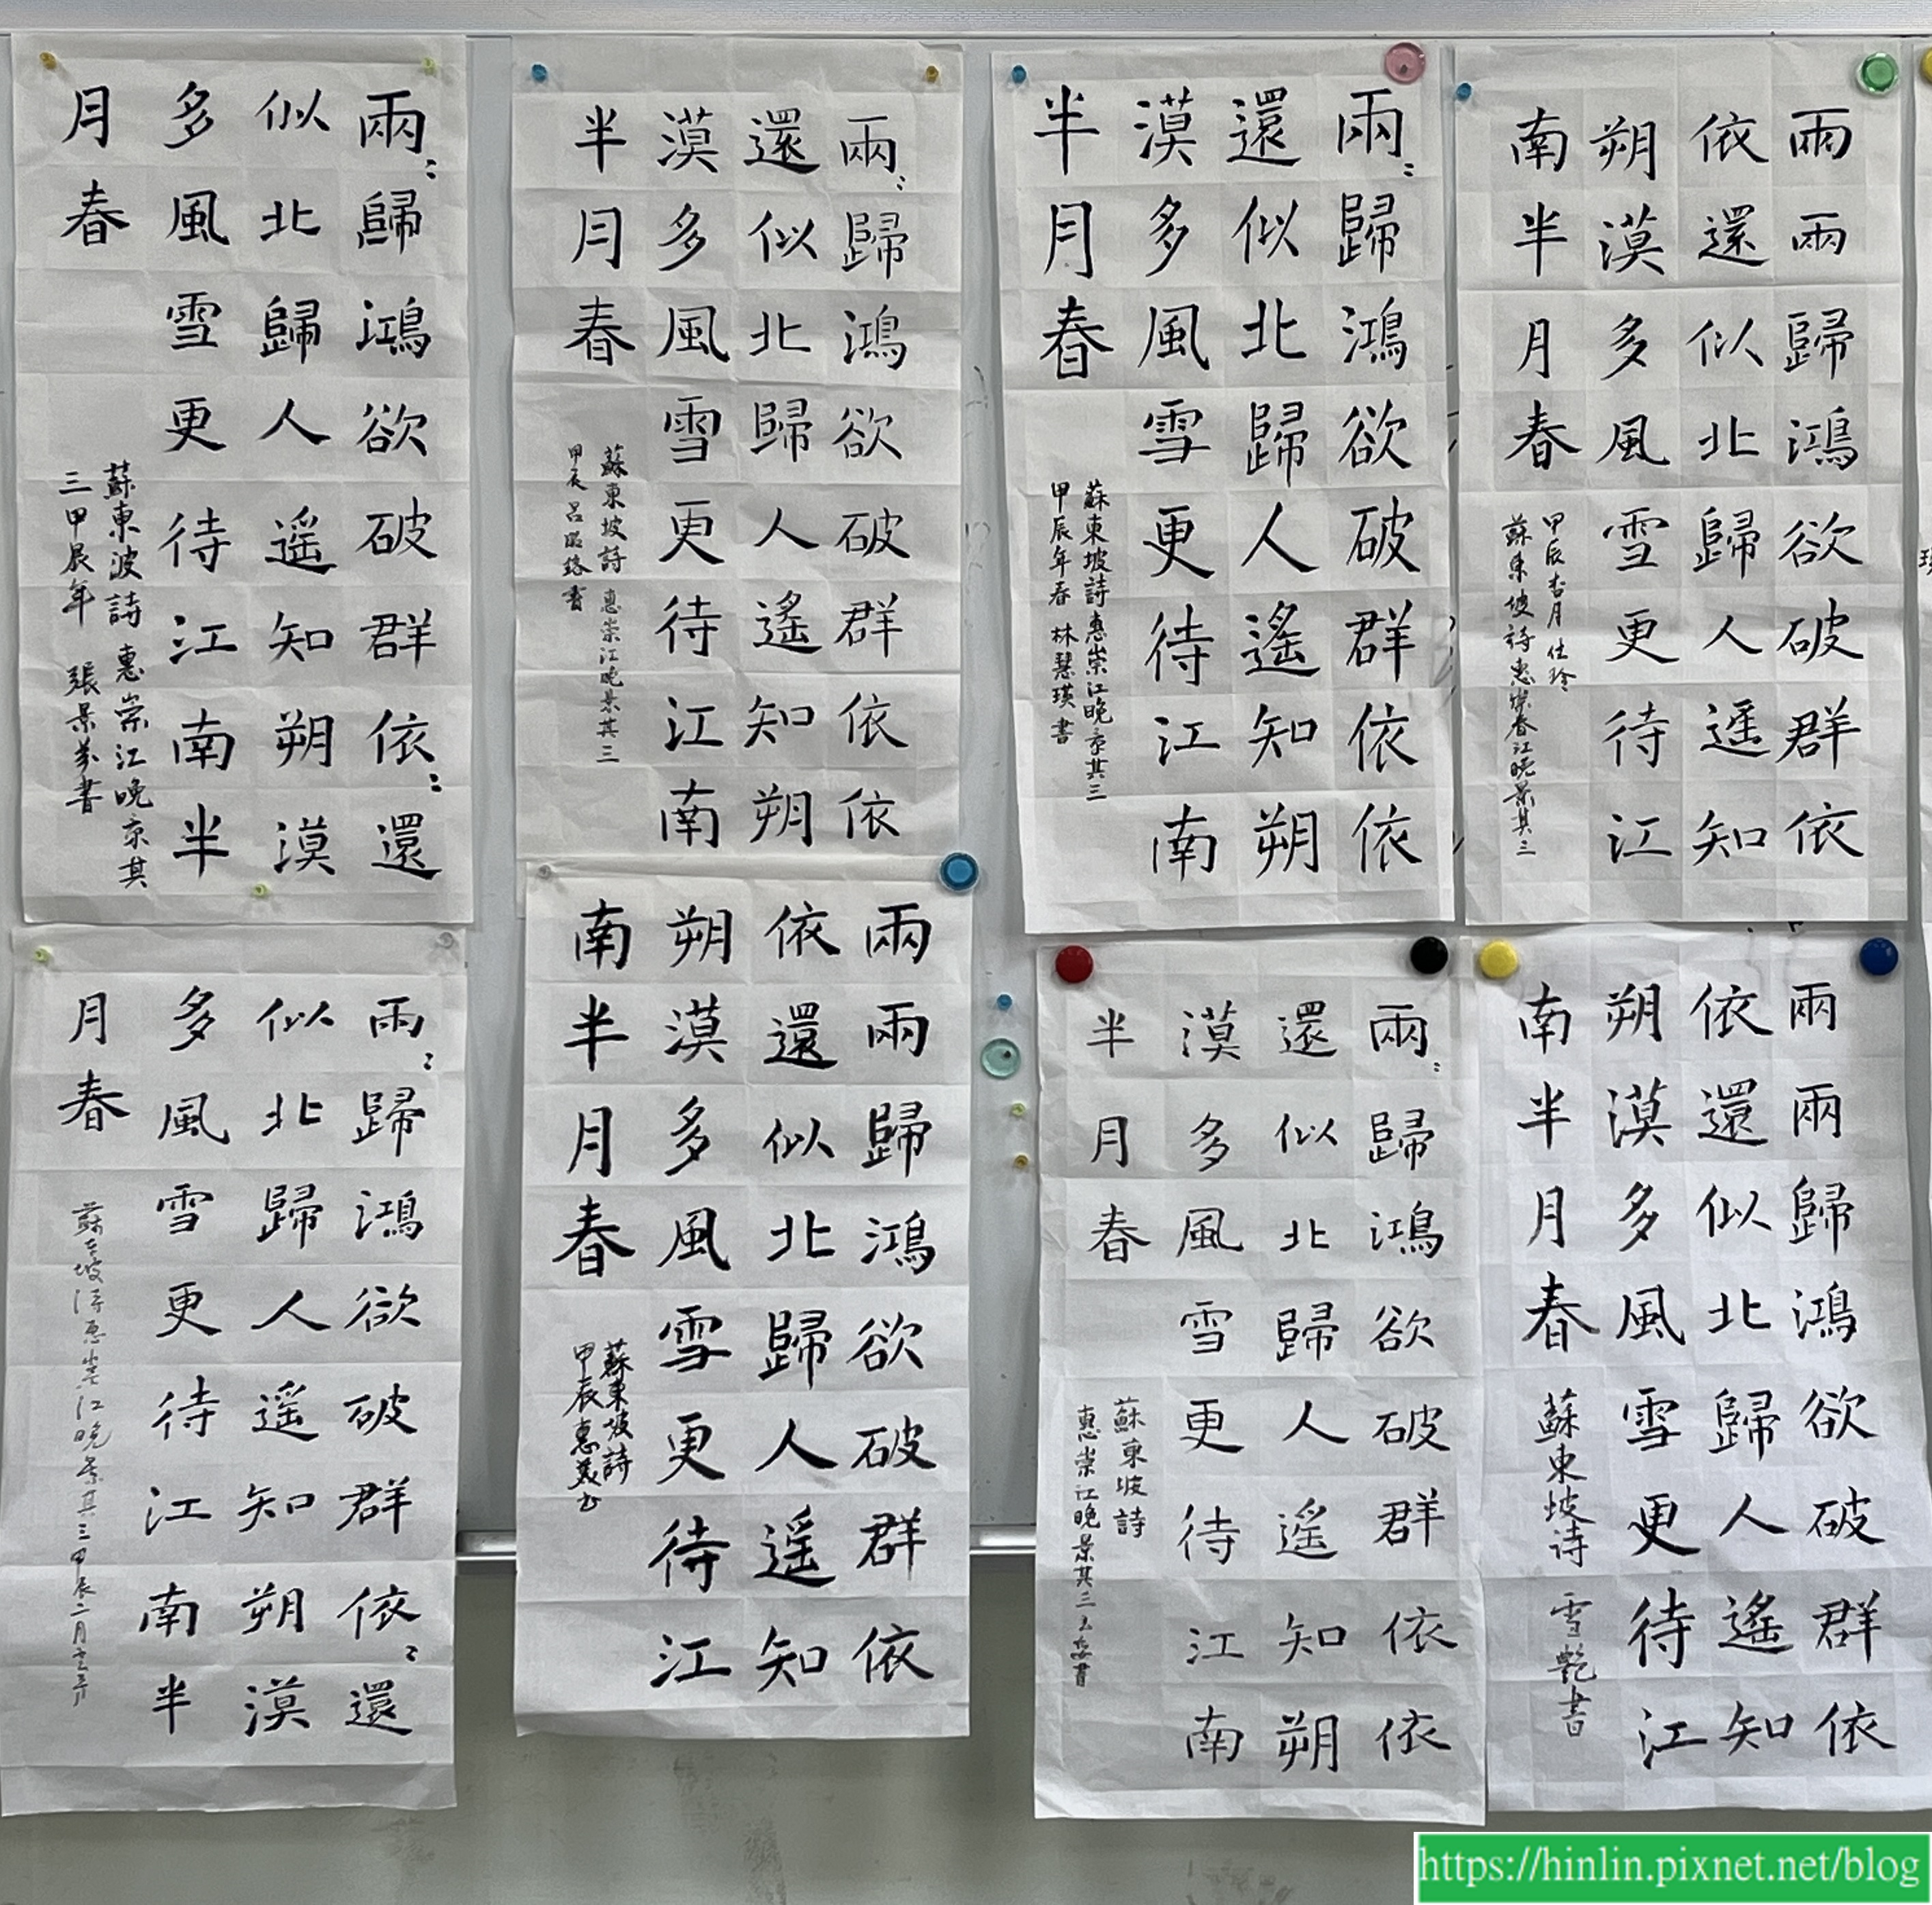 兩〻歸鴻欲破群依〻還
似北歸人遥知朔漠
多風雪更待江南半
月春
蘇東波詩 惠崇江晚京其
三甲辰年 張景書
兩〻歸鴻欲破群依依
還似北歸人遙知朔
漠多風雪更待江南
半月春
蘇東坡詩 惠崇江晚景其三
甲辰 呂昭書
兩〻歸鴻欲破群依依
還似北歸人遙知朔
漠多風雪更待江南
半月春
蘇東坡詩惠崇江晚京其三
甲辰年春 林慧瑛書
兩兩歸鴻欲破群依
依還似北歸人遥知
朔漠多風雪更待江
南半月春
甲辰杏月仕玲
蘇東坡詩惠崇春江晚景其三
兩〻歸鴻欲破群依〻還
似北歸人遥知朔漠
多風雪更待江南半
月春
蘇東坡詩惠崇江晚景其三甲辰二月
兩兩歸鴻欲破群依
依還似北歸人遥知
朔漠多風雪更待江
南半月春
蘇東坡詩
甲辰惠美書
兩〻歸鴻欲破群依依
還似北歸人遥知朔
漠多風雪更待江南
半月春
蘇東坡詩
惠崇江晚景其三玉書
兩兩歸鴻欲破群依
依還似北歸人遙知
朔漠多風雪更待江
南半月春
蘇東坡诗 雪艷書
https://hinlin.pixnet.net/blog